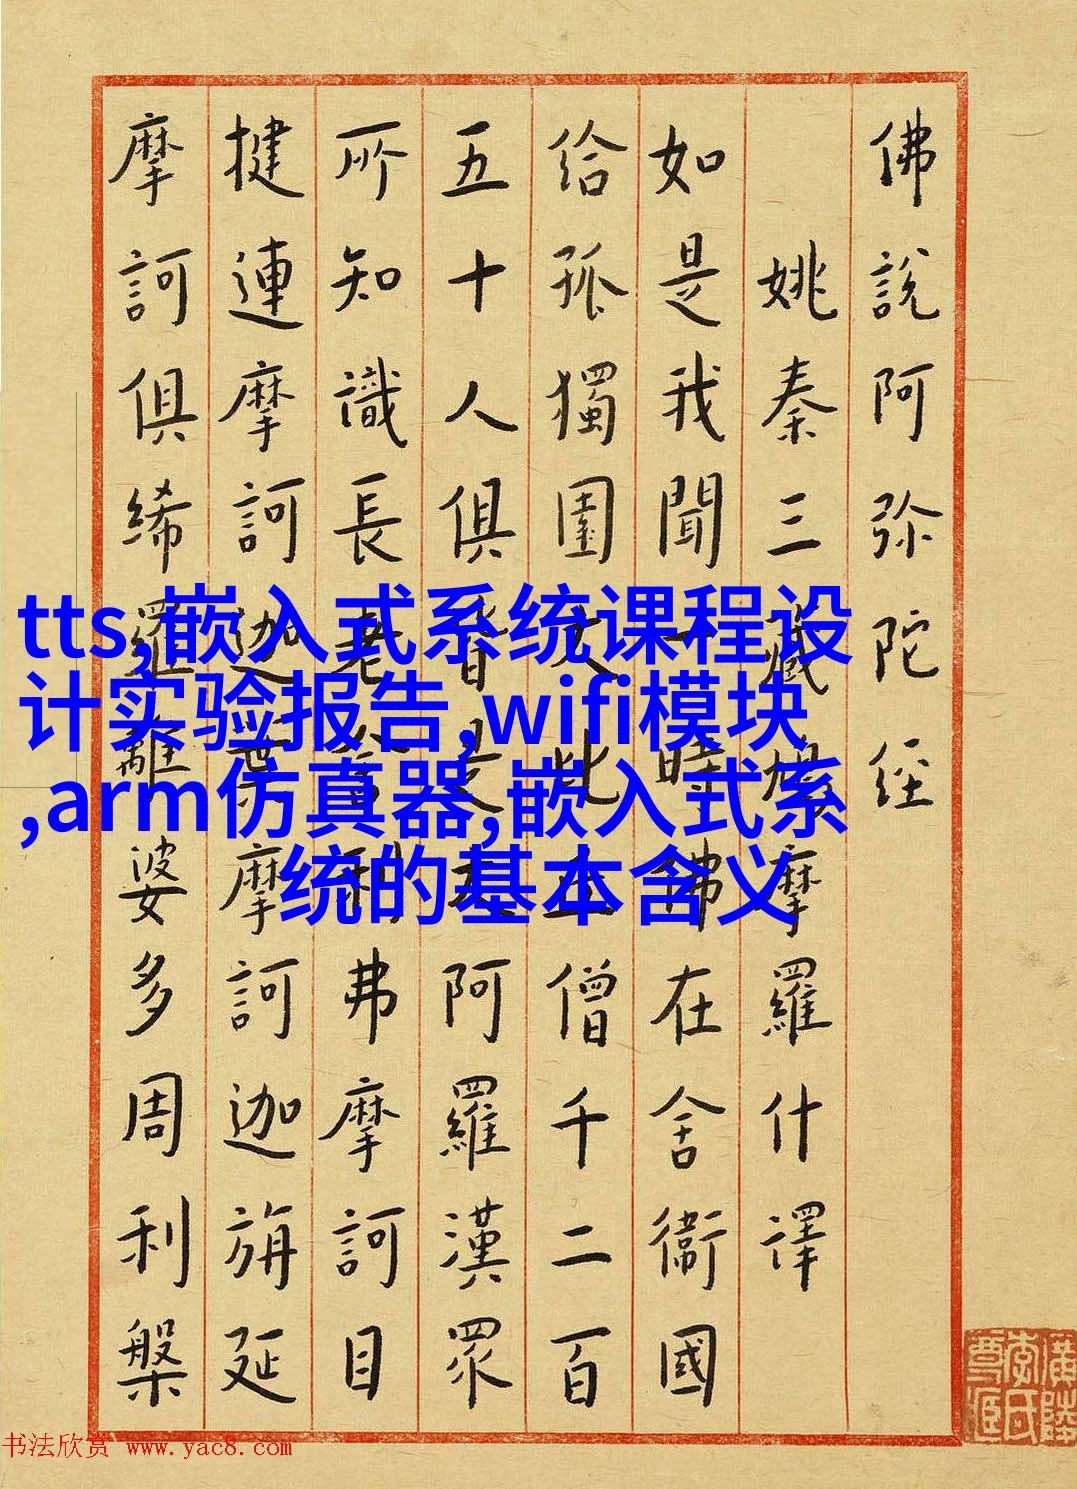 佛說阿弥陀經
姚秦三藏鳩摩羅什譯
如是我聞一時佛在舍衛國
给孤獨園大比丘僧千二百
五十人俱皆是大阿羅漢眾
所知識長老舍利弗摩訶目
揵連摩訶迦葉摩訶迦旃延
摩訶俱絺羅離婆多周利槃
tts,嵌入式系统课程设
计实验报告,wifi模块
,arm仿真器,嵌入式系
统的基本含义
书法欣赏 www.yac8.com